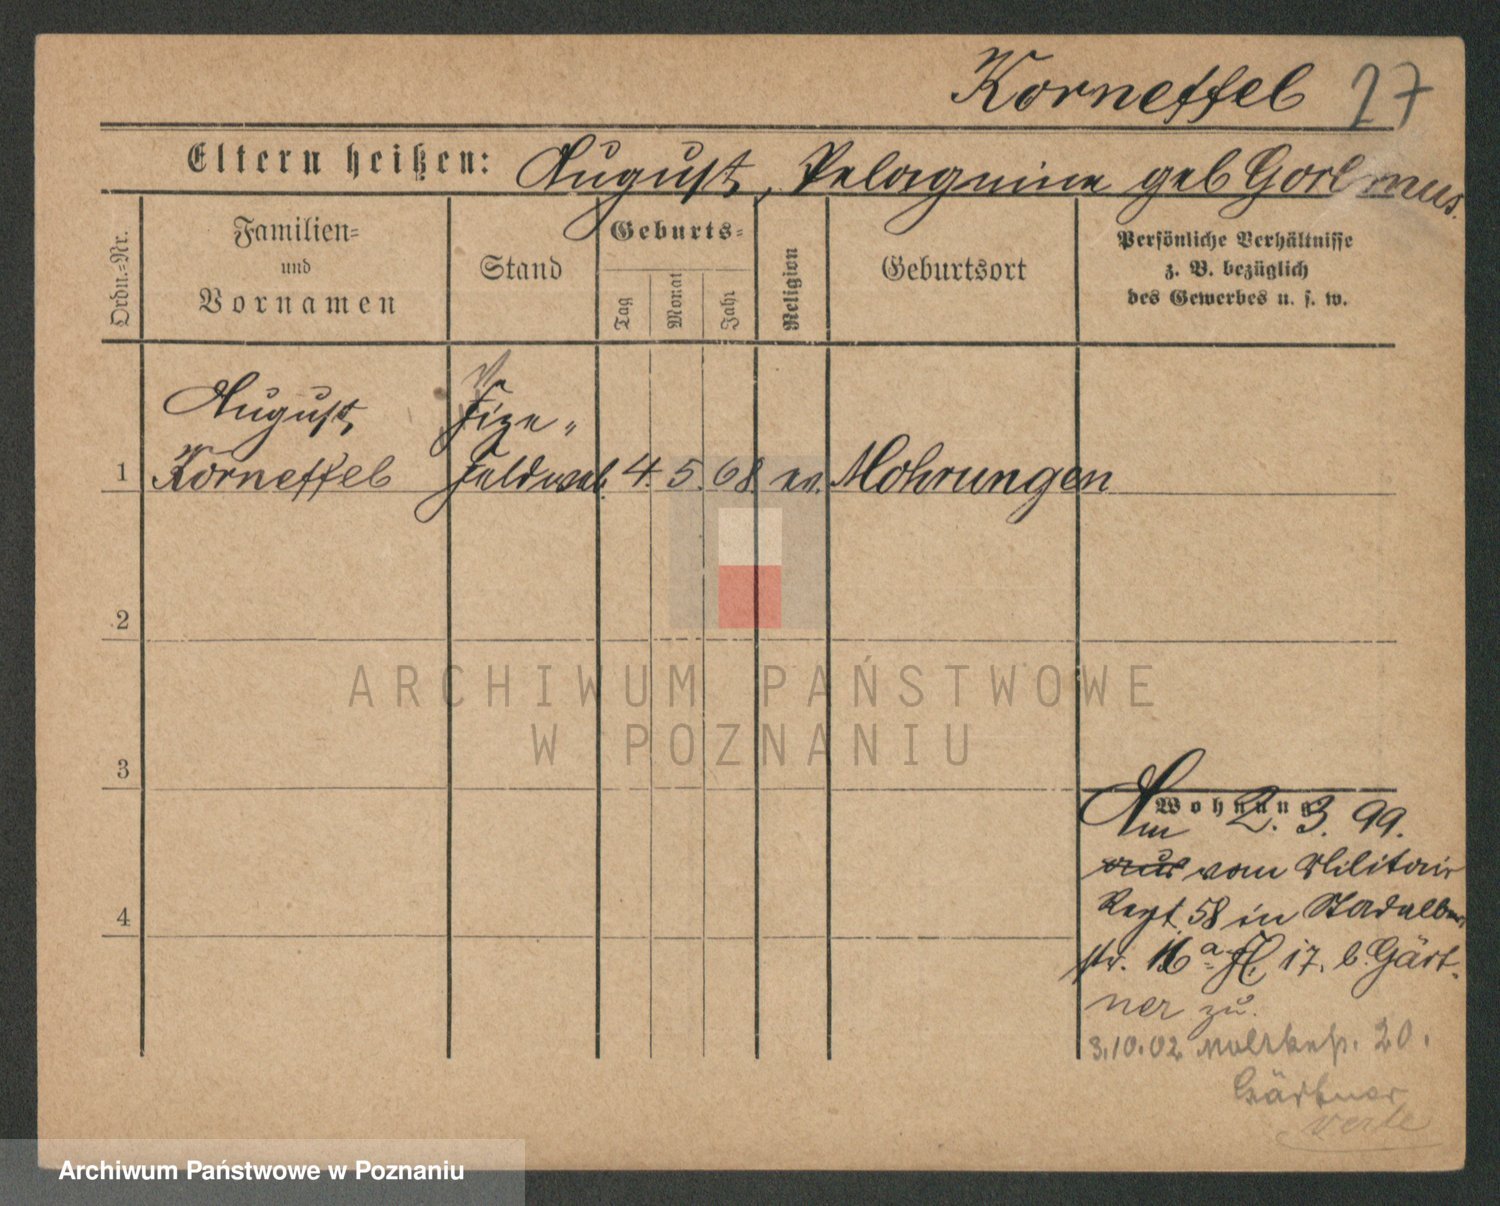 Korneffel 27
Eltern heißen: August, Pelagnine geb
Ordn.=Nr.
Familien=
und
Vornamen
Stand
Geburts=
Tag
Monat
Jahr
Religion
Geburtsort
Persönliche Verhältnisse
z. B. bezüglich
des Gewerbes u. s. w.
August, Vize"
1 Korneffel Feldweb. 4. 5. 68. ev. Mohrungen
2
ARCHIWUM PAŃSTWOWE
W POZNANIU
3
Wohnung
Am 2. 3. 99.
aus vom Militair
4
Regt 58 in
str. 16a H. 17. b. Gärt-
ner zu.
3.10.02 Moltkestr. 20.
Gärtner
verte
Archiwum Państwowe w Poznaniu